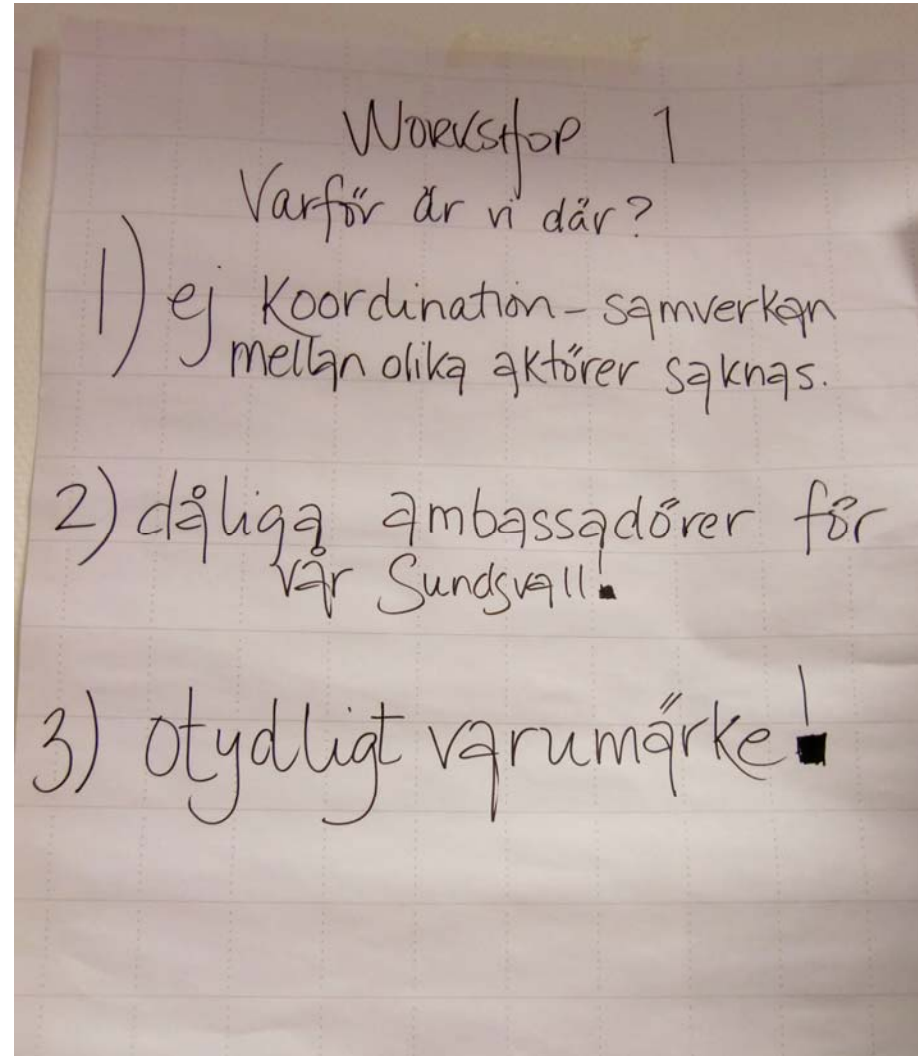 Workshop 1
Varför är vi där?
1) ej koordination - samverkan
mellan olika aktörer saknas.
2) dåliga ambassadörer för
vår Sundsvall!
3) otydligt varumärke!